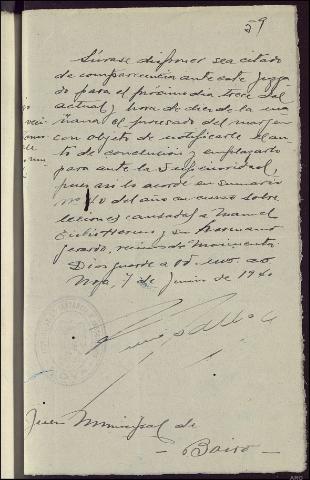 59
Sírvase disponer sea citado
de comparecencia ante este Juzga
do para el próximo dia trece del
actual y hora de diez de la ma
ñana el procesado del margen
con objeto de notificarle el au
to de conclusión y emplazarlo
para ante la Superioridad,
pues asi lo acordé en sumario
nº 40 del año en curso sobre
lesiones causadas a Manuel
y su hermano
Gerardo, vecinos de
Dios guarde a Vd. muchos
Noya, 7 de Junio de 1940
Juez Municipal de
Boiro